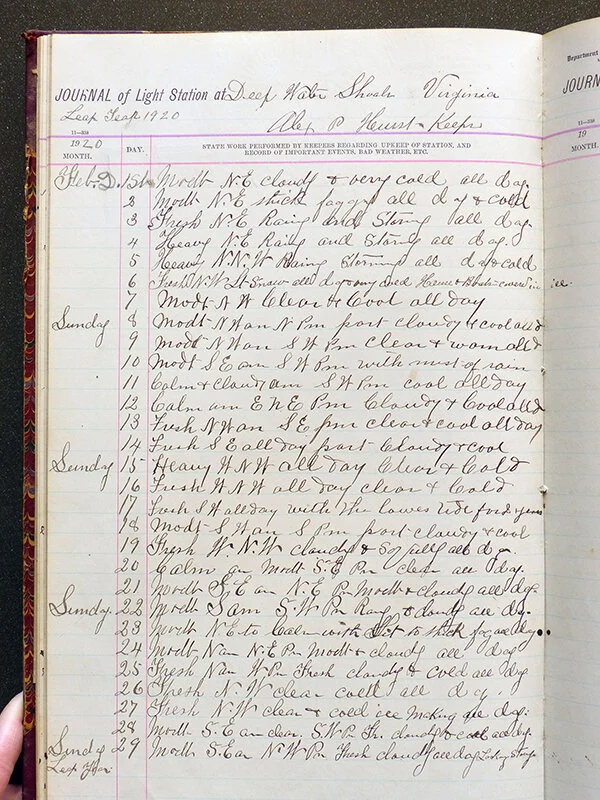 JOURNAL of Light Station at Deep Water Shoals Virginia
Leap Year 1920
Alex P Keeper
11—338
1920
MONTH.
DAY.
STATE WORK PERFORMED BY KEEPERS REGARDING UPKEEP OF STATION, AND
RECORD OF IMPORTANT EVENTS, BAD WEATHER, ETC.
Feb. 1st Modt N.E cloudy & very cold all day.
2 Modt N.E thick foggy all day & cold
3 Fresh N.E. Raing and Storng all day.
4 Heavy N.E Raing and Storng all day.
5 Heavy N.N.W Raing Storming all day & cold
6 Fresh N.W Lt Snow all day and House & Boats in ice.
7 Modt N W Clear & Cool all day
Sunday 8 Modt N W am N Pm part cloudy & cool all d
9 Modt N W am S W Pm clear & warm all d
10 Modt S E am S W Pm with mist of rain
11 Calm & cloudy am S W Pm cool all day
12 Calm am E N E Pm Cloudy & Cool all d
13 Fresh N W am S E pm clear & cool all day
14 Fresh S E all day part Cloudy & cool
Sunday 15 Heavy W N W all day Clear & Cold
16 Fresh W N W all day clear & Cold
17 Fresh S W all day with the lowes tide
18 Modt S W am S Pm part cloudy & cool
19 Fresh W. N.W cloudy & all day.
20 Calm am Modt S.E Pm clear all day.
21 Modt S.E am N.E Pm Modt & cloudy all day.
Sunday 22 Modt S am S.W Pm Rainy & cloudy all day.
23 Modt N.E to Calm with Lit to thick fog all day
24 Modt N am N.E Pm Modt & cloudy all day
25 Fresh N am W Pm Fresh cloudy & cold all day
26 Fresh N. W clear cold all day.
27 Fresh N.W clear & cold ice making all day.
28 Modt S.E am clear. S.W Pm Fr. cloudy & cold all day.
Sunday 29 Modt S.E am N.W Pm Fresh cloudy all day
Leap Year
Department
JOURN
11—338
19
MONTH.